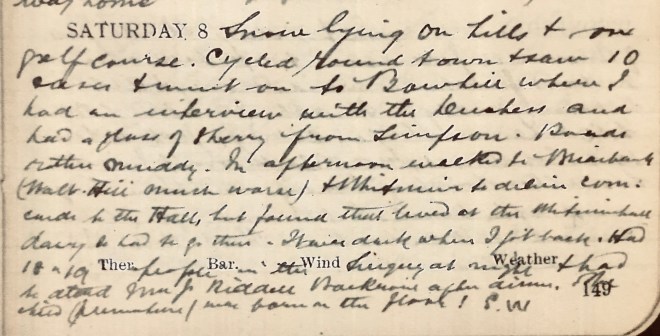 way home
SATURDAY 8 Snow lying on hills & on
golf course. Cycled round town & saw 10
cases & went on to Bowhill where I
had an interview with the Duchess and
had a glass of sherry from Simpson. Roads
rather muddy. In afternoon walked to
(Walt: Hill much worse) & Whitmuir to deliver
cards to the Halls but found they lived at the Whitmuirhall
dairy & had to go there. It was dark when I got back. Had
18 or 19 people in the Surgery at night & had
Ther. Bar. Wind Weather
to attend Mrs J. Riddell after dinner. The
child (premature) was born on the floor! E.W
149